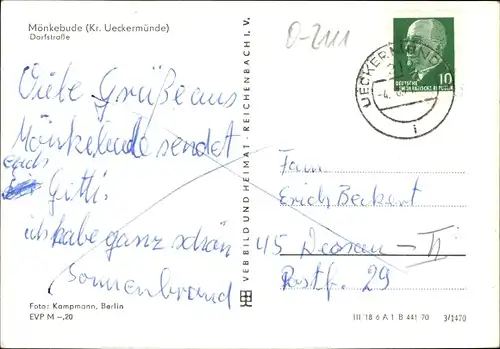 Mönkebude (Kr. Ueckermünde)
Dorfstraße
Viele Grüße aus
Mönkebude sendet
euch
Gitti.
ich habe ganz schön
Sonnenbrand
Foto: Kampmann, Berlin
EVP M –,20
VEB BILD UND HEIMAT · REICHENBACH I. V.
0-2111
UECKERMÜNDE
DEUTSCHE
DEMOKRATISCHE REPUBLIK
10
Fam
Erich Beckert
45 Dessau – II
Postf. 29
III 18 6 A 1 B 441 70 3/1470